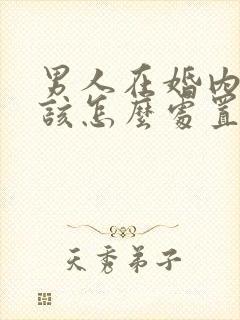 男人在婚内
該怎麼處置
天秀弟子